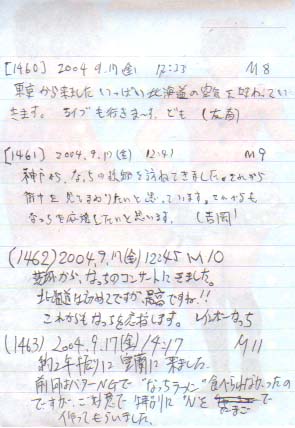 [1460] 2004.9.17(金) 12:33 M8
東京から来ました いっぱい北海道の空気を味わってい
きます。ライブも行きまーす。ども (友商)
[1461] 2004.9.17(金) 12:41 M9
神戸から、なっちの故郷を訪ねてきました。これから
街中を見てまわりたいと思っています。これからも
なっちを応援したいと思います。(吉岡)
(1462) 2004.9.17(金) 12:45 M10
から、なっちのコンサートにきました。
北海道は初めてですが、最高ですね!!
これからもなっちを応おします。 なっち
(1463) 2004.9.17(金) 14:17 M11
約2年振りに室蘭に来ました。
前回はバターNGで"なっちラーメン"食べられなかったの
ですが、ご好意で特別に"Nをたまごで
作ってもらいました。